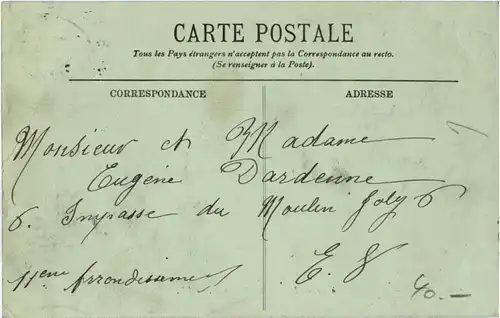 CARTE POSTALE
Tous les Pays étrangers n'acceptent pas la Correspondance au recto.
(Se renseigner à la Poste).
CORRESPONDANCE
ADRESSE
Monsieur et Madame
Eugéne Dardenne
6. Impasse du Moulin Joly 6
11eme Arrondissement E. V
40.-